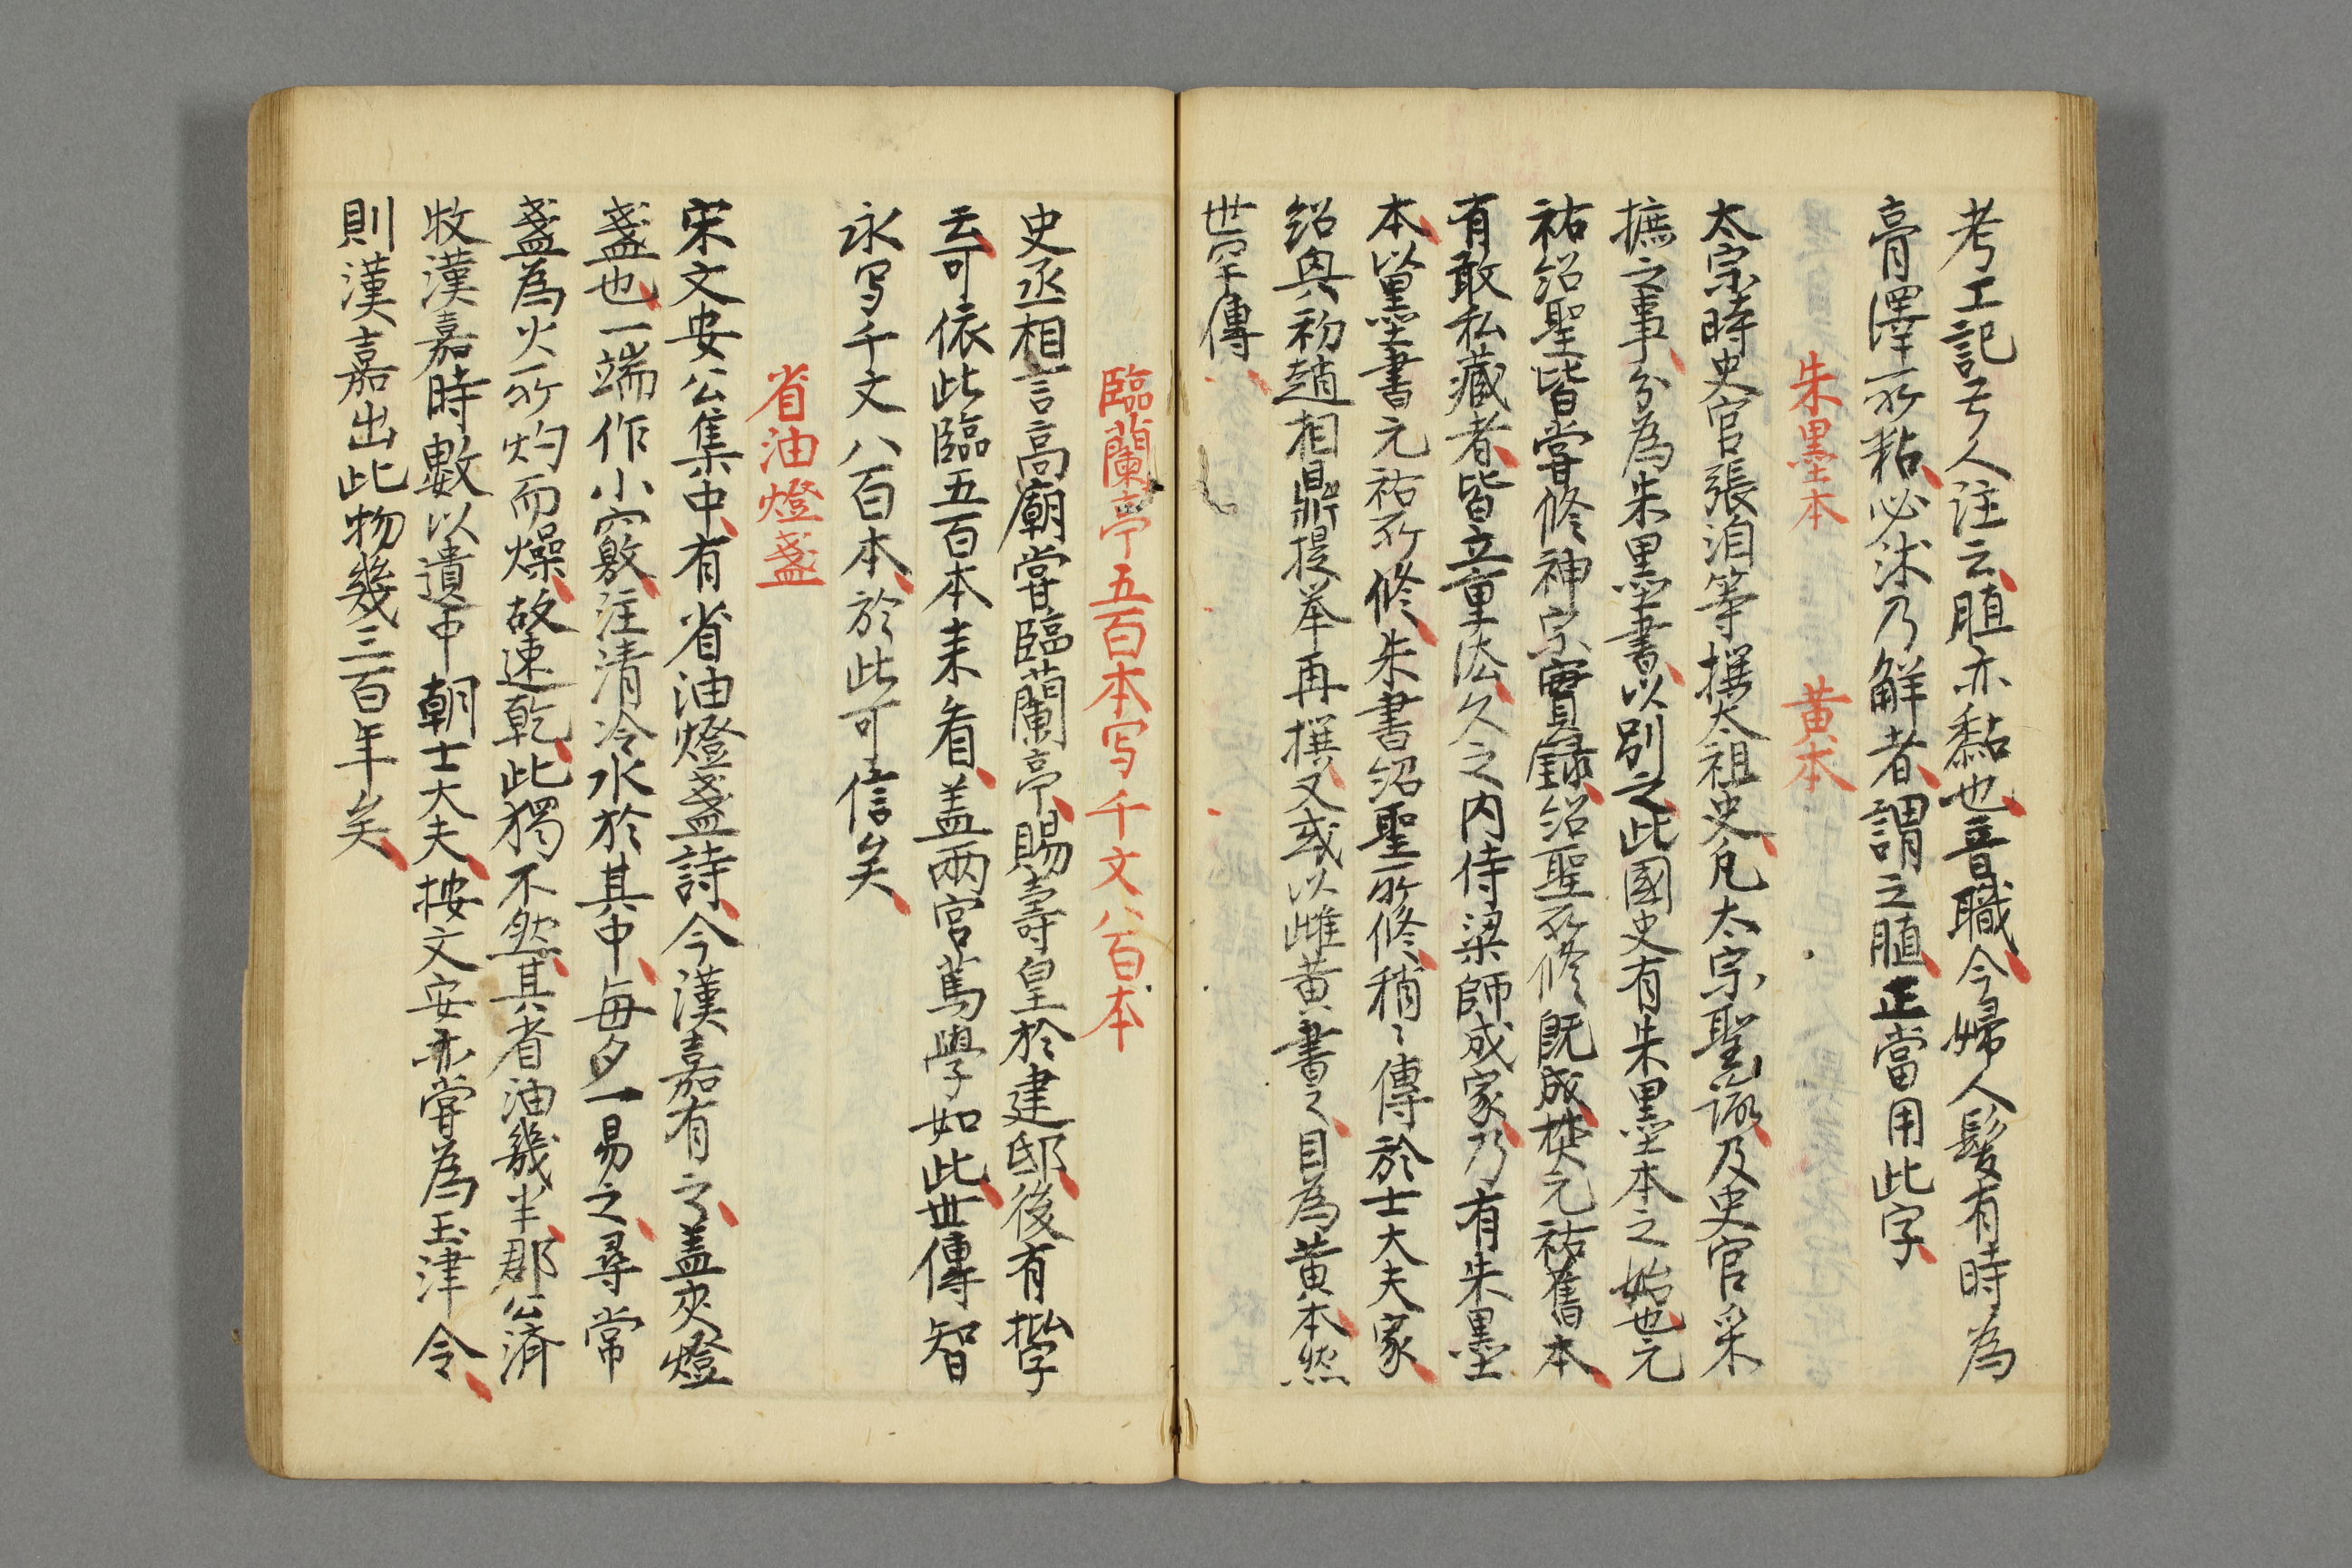 考工記弓人注云䐈亦黏也音職今婦人髮有時為
膏澤所粘必沐乃解者謂之䐈正當用此字
朱墨本　黄本
太宗時史官張洎等撰太祖史凡太宗聖諭及史官采
摭之事分為朱墨書以別之此國史有朱墨本之始也元
祐紹聖皆嘗修神宗實錄紹聖所修既成焚元祐舊本
有敢私藏者皆立重法久之内侍梁師成家乃有朱墨
本以墨書元祐所修朱書紹聖所修稍〻傳於士大夫家
紹興初趙相鼎提举再撰又或以雌黄書之目為黄本然
世罕傳
臨蘭亭五百本写千文八百本
史丞相言高廟嘗臨蘭亭賜壽皇於建邸後有批字
云可依此臨五百本来看盖两宮篤學如此世傳智
永写千文八百本於此可信矣
省油燈盞
宋文安公集中有省油燈盞詩今漢嘉有之盖夾燈
盞也一端作小竅注清冷水於其中每夕一易之尋常
盞為火所灼而燥故速乾此獨不然其省油幾半郡公済
牧漢嘉時數以遺中朝士大夫按文安亦嘗為玉津令
則漢嘉出此物幾三百年矣